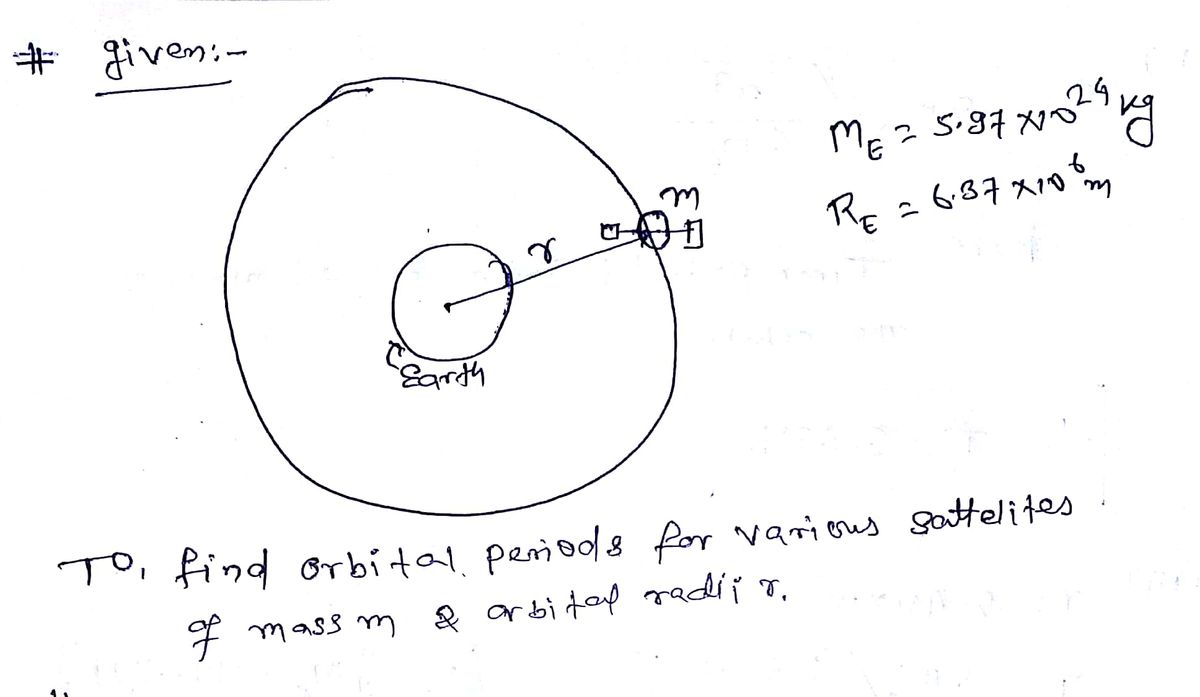 # given:-
M_E = 5.97 ×10^24 kg
R_E = 6.37 ×10^6 m
m
r
Earth
To, find orbital periods for various sattelites
of mass m & orbital radii r.